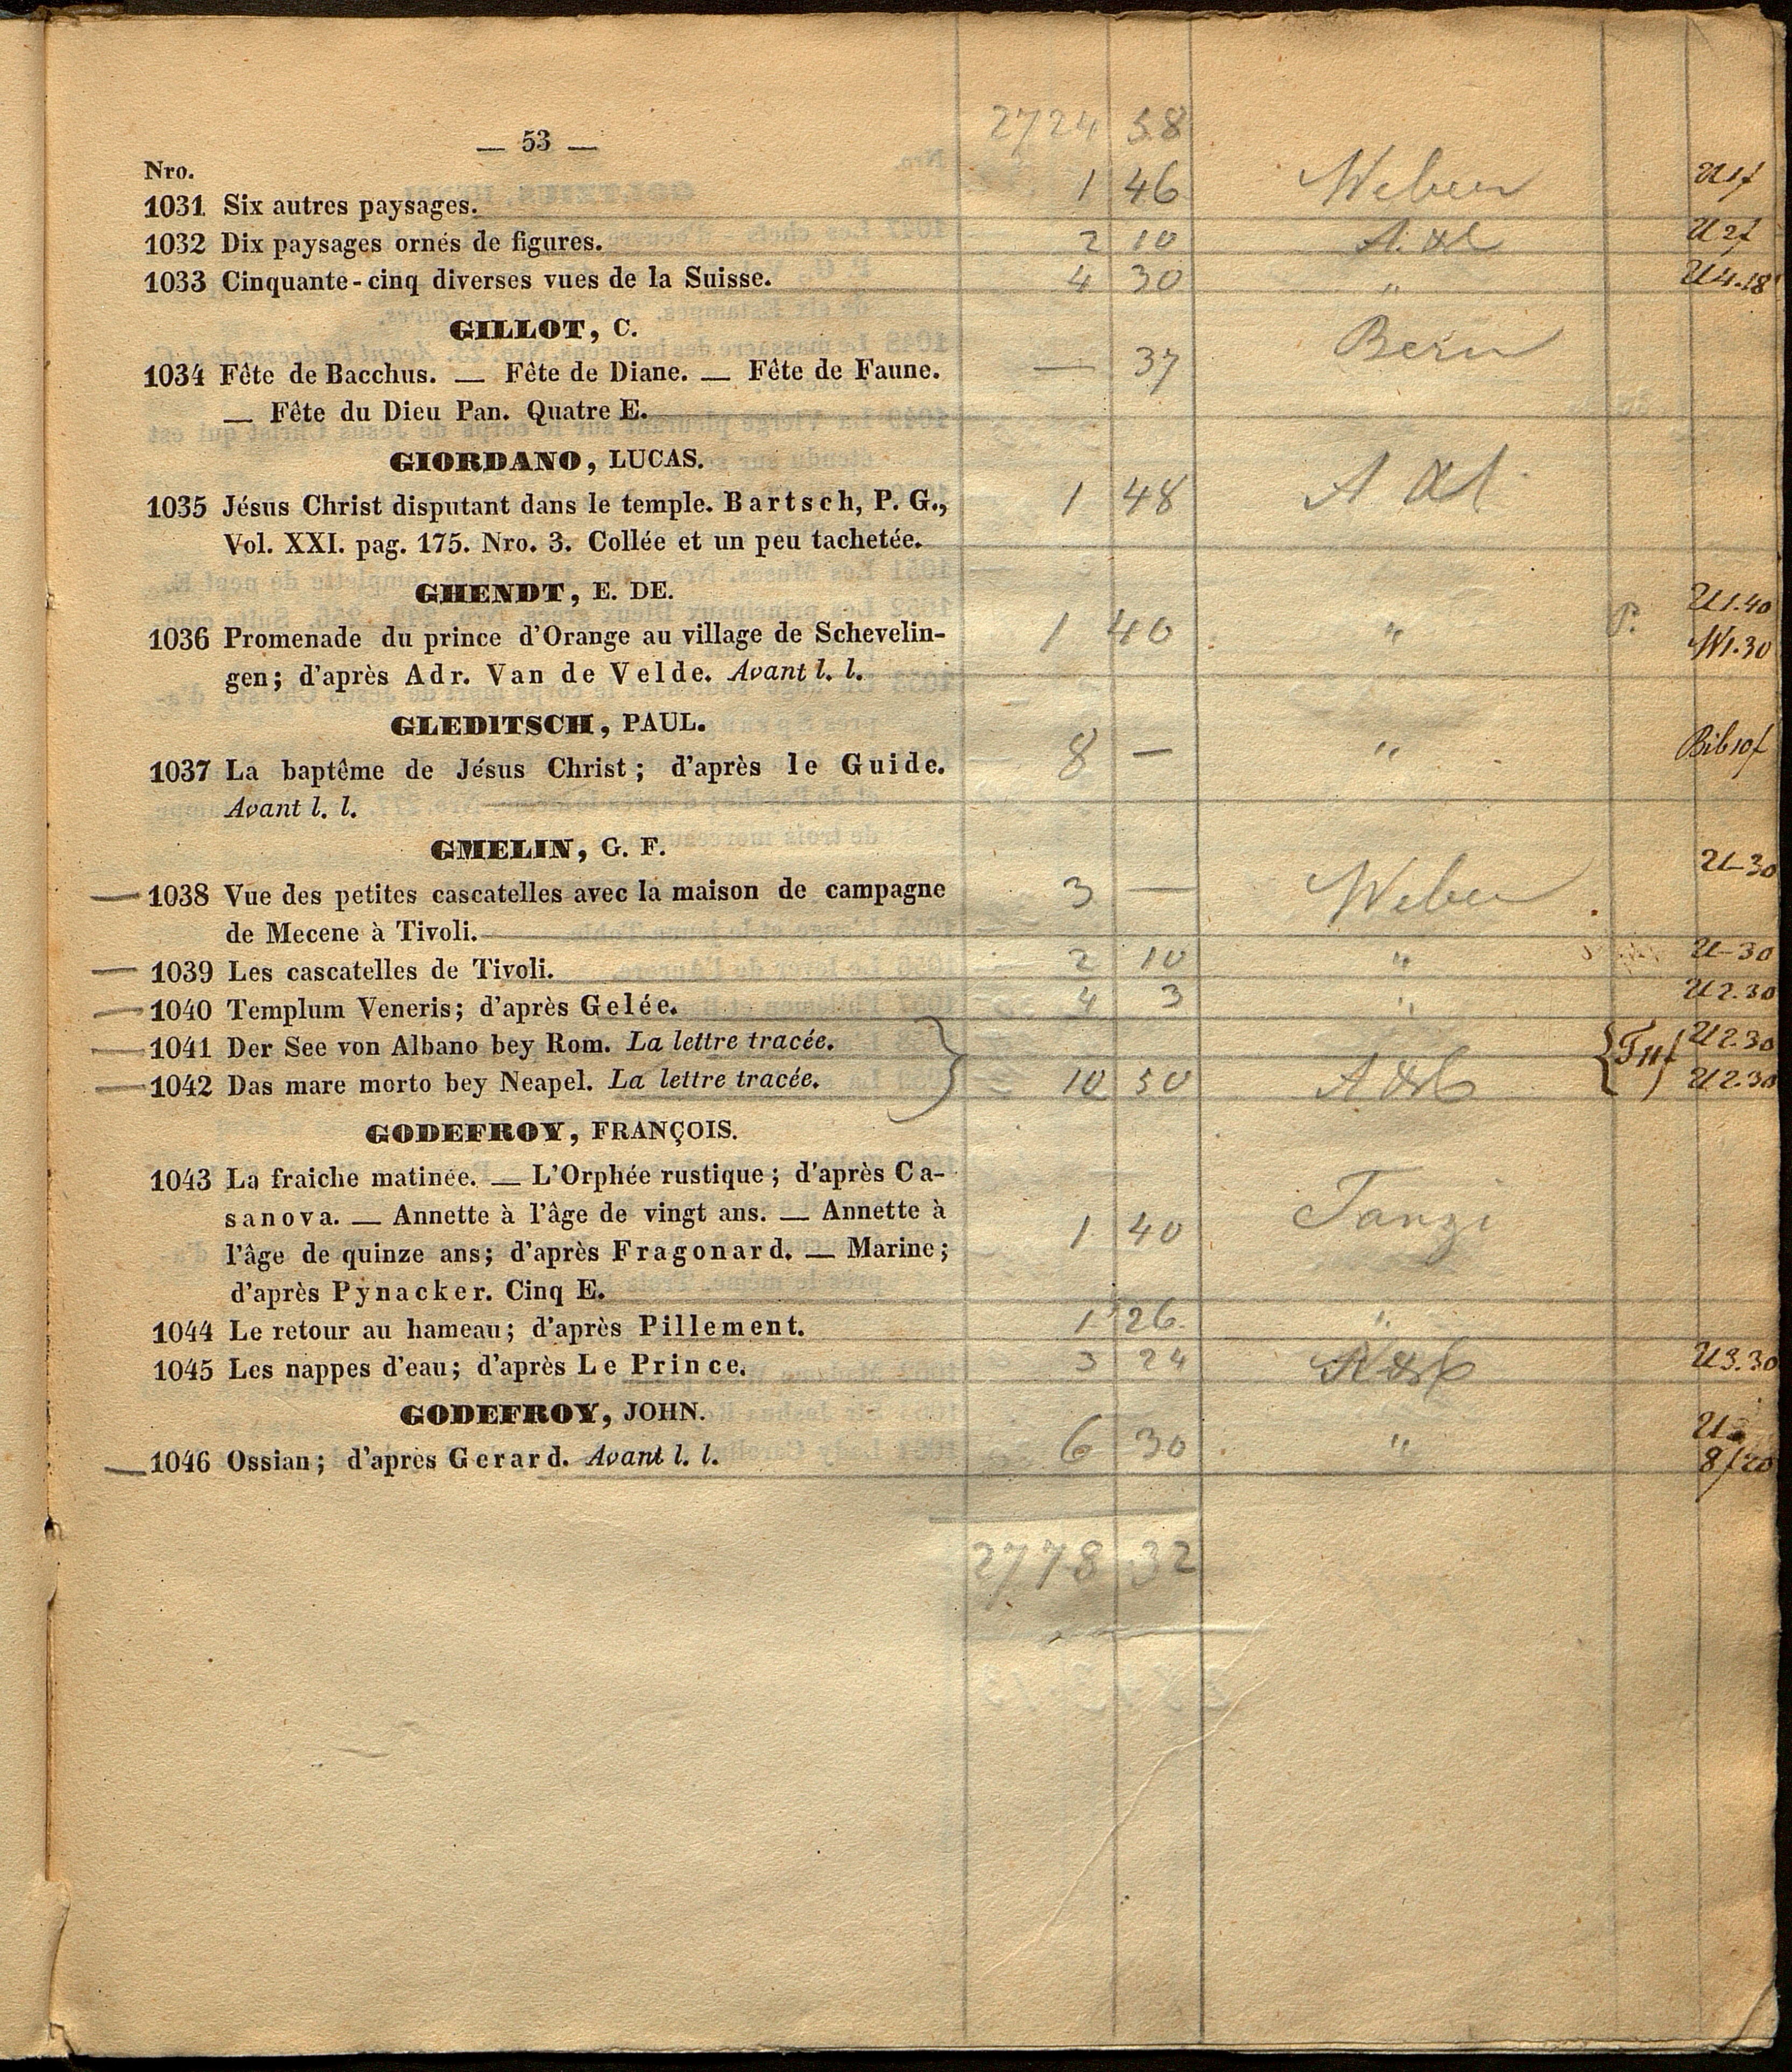 2724 58
— 53 —
Nro.
1031 Six autres paysages. 1 46 Weber U 1f
1032 Dix paysages ornés de figures. 2 10 U 2f
1033 Cinquante-cinq diverses vues de la Suisse. 4 30 " U 4.18
GILLOT, C.
1034 Fête de Bacchus. — Fête de Diane. — Fête de Faune. — 37
— Fête du Dieu Pan. Quatre E.
GIORDANO, LUCAS.
1035 Jésus Christ disputant dans le temple. Bartsch, P. G., 1 48
Vol. XXI. pag. 175. Nro. 3. Collée et un peu tachetée.
GHENDT, E. DE.
U 1.40
1036 Promenade du prince d'Orange au village de Schevelin- 1 40 " P. W 1.30
gen; d'après Adr. Van de Velde. Avant l. l.
GLEDITSCH, PAUL.
1037 La baptême de Jésus Christ; d'après le Guide. 8 — " Bib 10f
Avant l. l.
GMELIN, G. F.
1038 Vue des petites cascatelles avec la maison de campagne 3 — Weber U-30
de Mecene à Tivoli.
1039 Les cascatelles de Tivoli. 2 10 " U-30
1040 Templum Veneris; d'après Gelée. 4 3 " U 2.30
1041 Der See von Albano bey Rom. La lettre tracée. U 2.30
1042 Das mare morto bey Neapel. La lettre tracée. 10 50 U 2.30
GODEFROY, FRANÇOIS.
1043 La fraiche matinée. — L'Orphée rustique; d'après Ca-
sanova. — Annette à l'âge de vingt ans. — Annette à 1 40 Tanzi
l'âge de quinze ans; d'après Fragonard. — Marine;
d'après Pynacker. Cinq E.
1044 Le retour au hameau; d'après Pillement. 1 26 "
1045 Les nappes d'eau; d'après Le Prince. 3 24 U 3.30
GODEFROY, JOHN.
1046 Ossian; d'après Gerard. Avant l. l. 6 30 " 8f20
2778 32